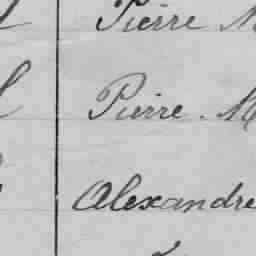 Pierre M
Pierre. M
Alexandre